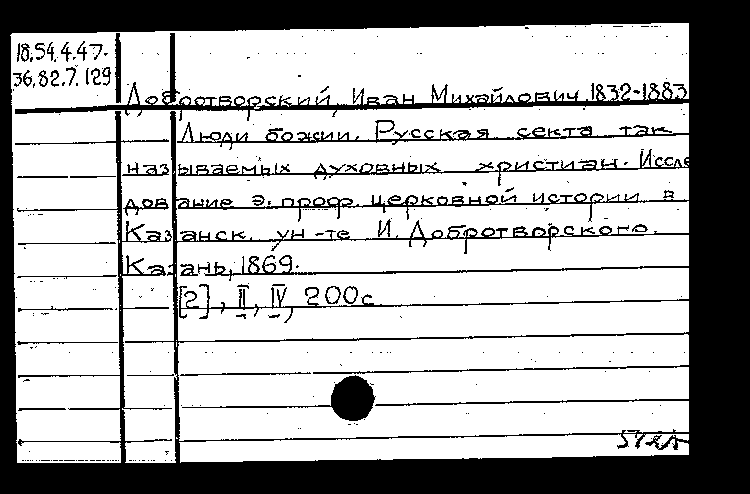 18.54.4.47.
36.82.7.129
Добротворский, Иван Михайлович, 1832-1883
Люди божии. Русская секта так
называемых духовных христиан. Иссле
дование э. проф. церковной истории в
Казанск. ун-те И. Добротворского.
Казань, 1869.
[2], II, IV, 200с.